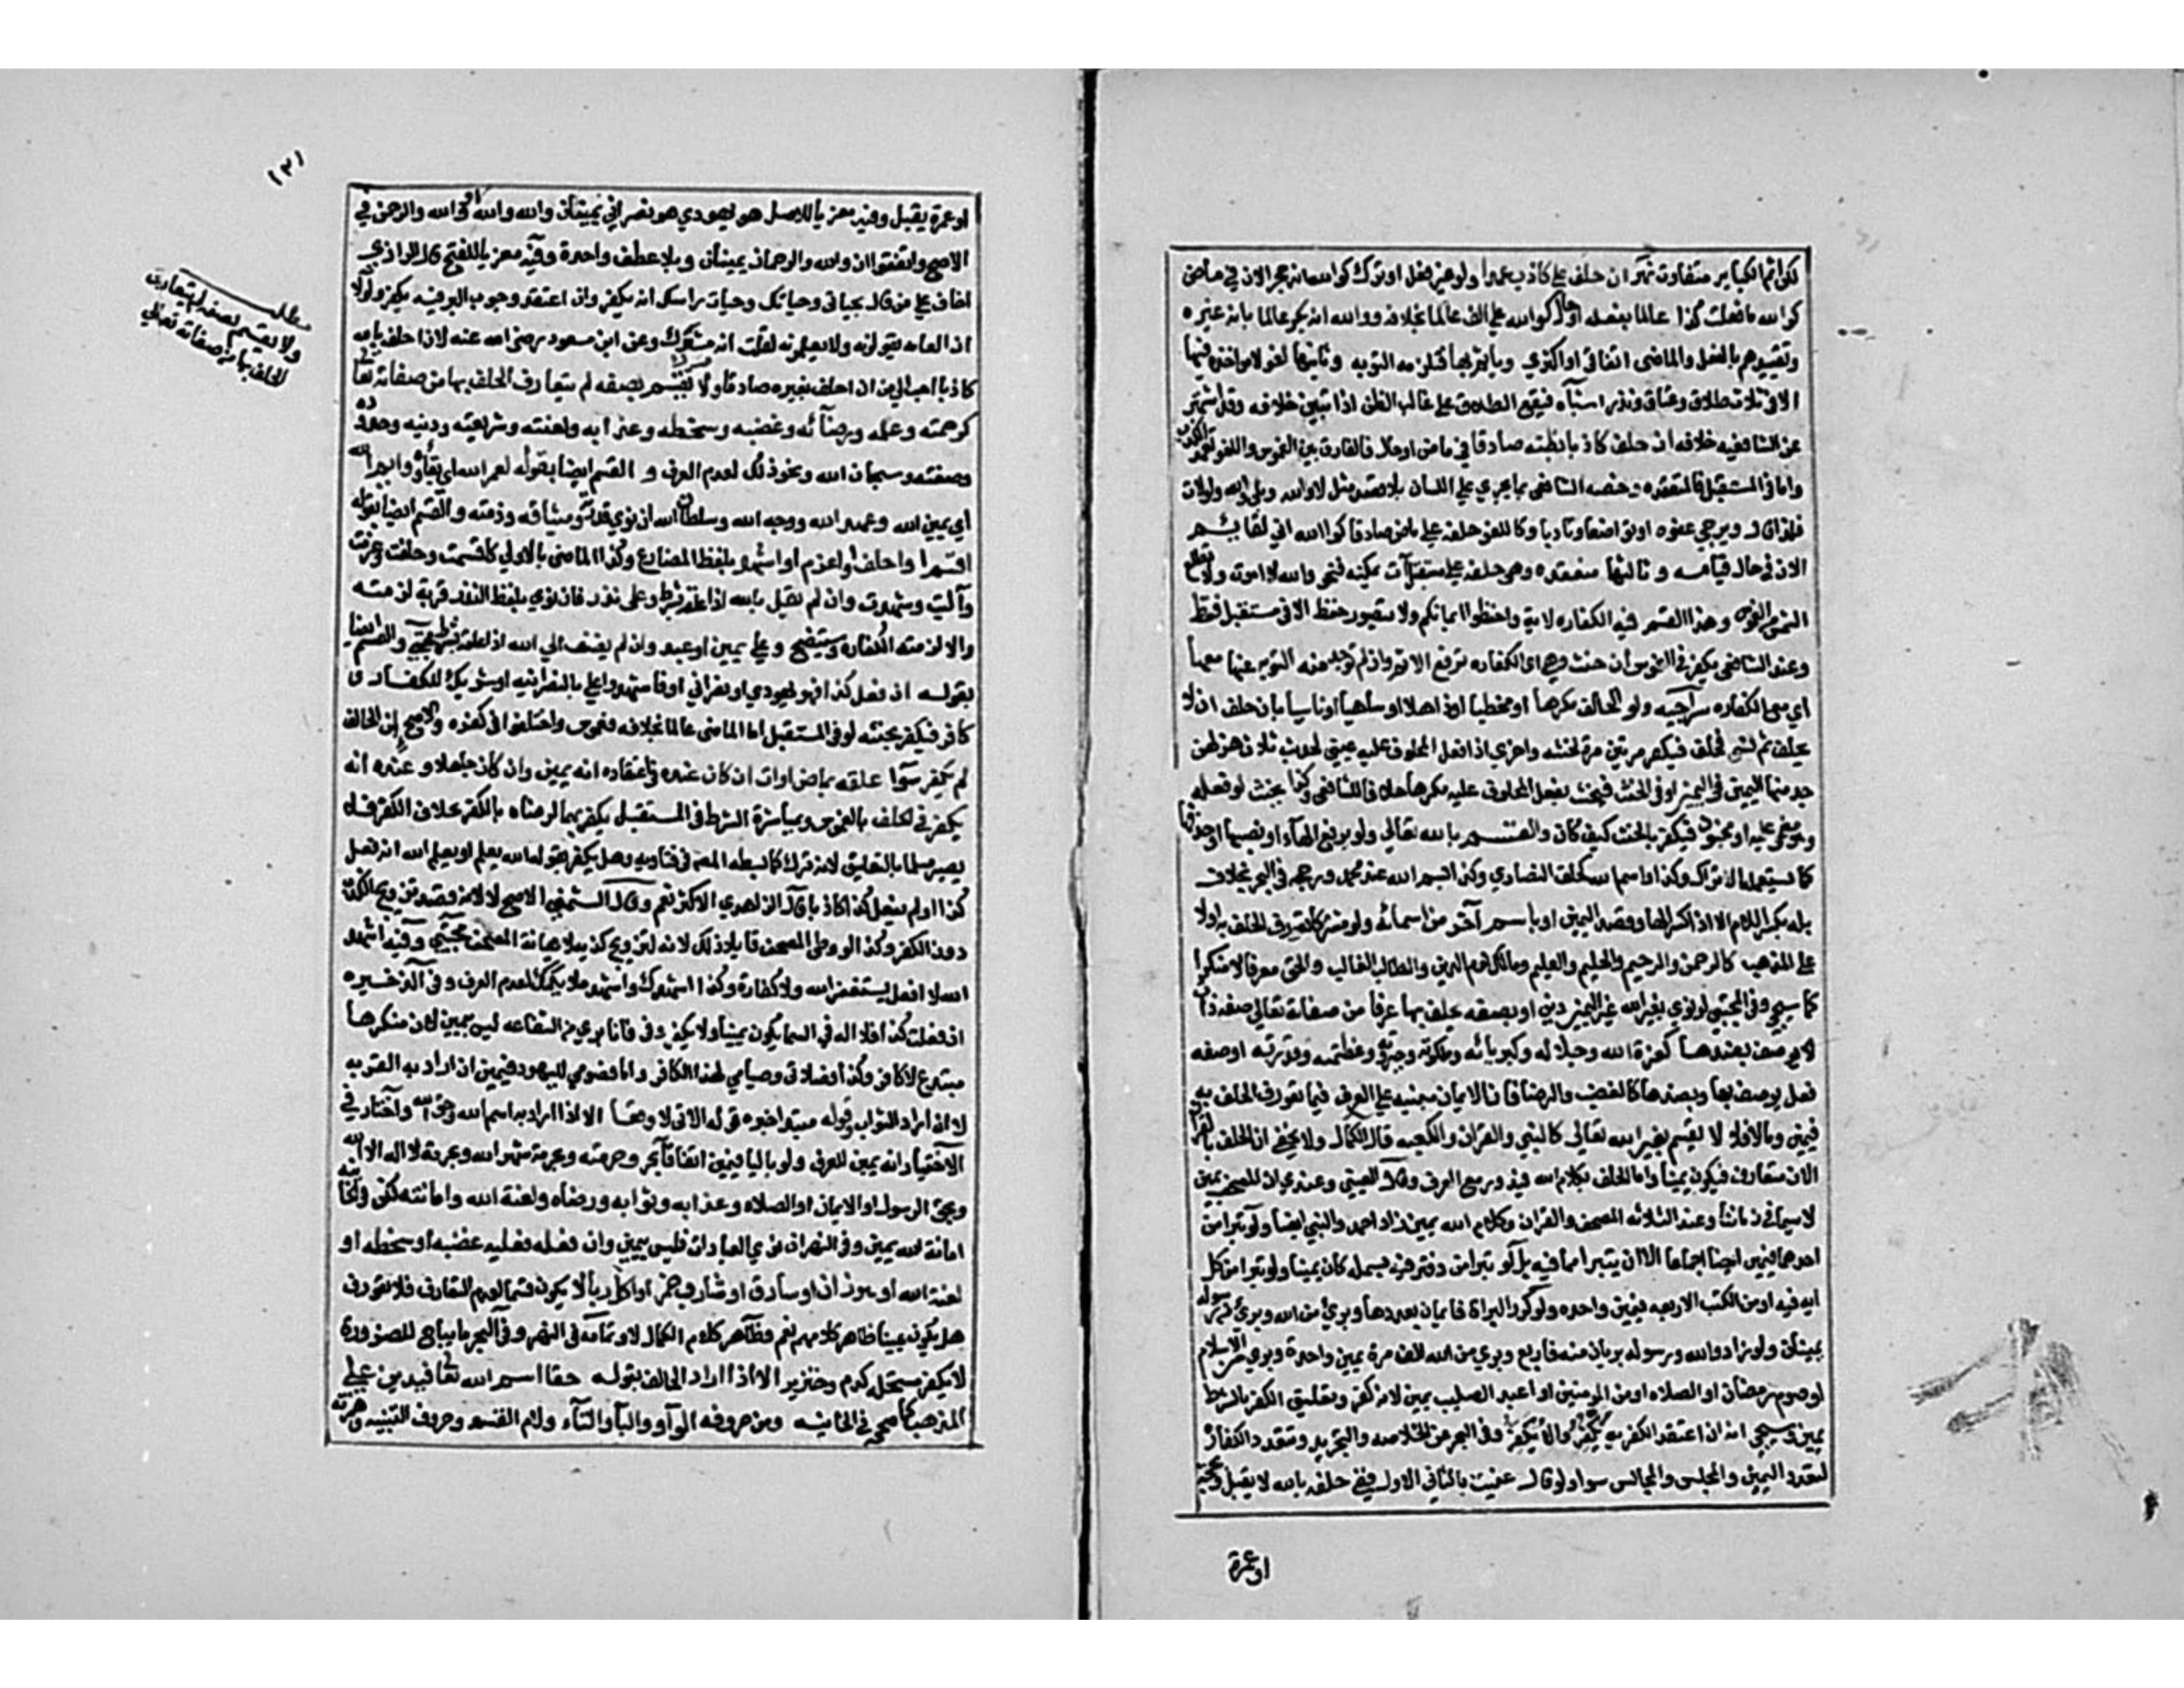 لكن اثم الكباير متفاوت نهر ان حلف على كاذب عمدا ولو غير فعل او ترك كوالله انه حجر الان في ماض
كوالله ما فعلت كذا عالما بفعله او حال كوالله ما له علي الف عالما بخلافه ووالله انه بكر عالما بانه غيره
وتقييدهم بالفعل والماضي اتفاقي او اكثري وياثم بها فتلزمه التوبه وثانيها لغو لا مواخذه فيها
الا في ثلاث طلاق وعتاق ونذر اشباه فيقع الطلاق على غالب الظن اذا تبين خلافه وقد اشتهر
عن الشافعيه خلافه ان حلف كاذبا يظنه صادقا في ماض او حال فالفارق بين الغموس واللغو تعمد الكذب
واما في المستقبل فالمنعقده وخصه الشافعي بما يجري على اللسان بلا قصد مثل لا والله وبلى والله ولو لات
فلذا قال ويرجى عفوه او تواضعا وتادبا وكاللغو حلفه على ماض صادقا كوالله اني لقايم
الان في حال قيامه وثالثها منعقده وهي حلفه على مستقبل آت يمكنه فنحو والله لا اموت ولا تطلع
الشمس من الغموس وهذا القسم فيه الكفاره لاية واحفظوا ايمانكم ولا يتصور حفظ الا في مستقبل فقط
وعند الشافعي يكفر في الغموس ان حنث وهي اي الكفاره ترفع الاثم وان لم توجد منه التوبه عنها معها
اي مع الكفاره سراجيه ولو الحالف مكرها او مخطيا او ذاهلا او ساهيا او ناسيا بان حلف ان لا
يحلف ثم نسي فحلف فيكفر مرتين مرة لحنثه واخرى اذا فعل المحلوف عليه عيني لحديث ثلاث هزلهن
جد منها اليمين في اليمين او في الحنث فيحنث بفعل المحلوف عليه مكرها خلافا للشافعي وكذا يحنث لو فعله
وهو مغمى عليه او مجنون فيكفر بالحنث كيف كان والقسم بالله تعالى ولو برفع الهآء او نصبها او حذفها
كما يستعمله الاتراك وكذا واسم الله كحلف النصارى وكذا بسم الله عند محمد ورجحه في البحر بخلاف
بله بكسر اللام الا اذا كسر الهآ وقصد اليمين او باسم آخر من اسمائه ولو مشتركا تعورف الحلف به اولا
على المذهب كالرحمن والرحيم والحليم والعليم ومالك يوم الدين والطالب الغالب والحق معرفا لا منكرا
كما سيجي وفي المجتبى لو نوى بغير الله غير اليمين دين او بصفه يحلف بها عرفا من صفاته تعالى صفه ذات
لا يوصف بضدها كعزة الله وجلاله وكبريائه وملكوته وجبروته وعظمته وقدرته او صفه
فعل يوصف بها وبضدها كالغضب والرضا فان الايمان مبنيه على العرف فيما تعورف الحلف به
فيمين وما لا فلا لا يقسم بغير الله تعالى كالنبي والقران والكعبه قال الكمال ولا يخفى ان الحلف بالقران
الان متعارف فيكون يمينا واما الحلف بكلام الله فيدور مع العرف وقال العيني وعندي ان المصحف يمين
لا سيما في زماننا وعند الثلاثه المصحف والقران وكلام الله يمين زاد احمد والنبي ايضا ولو تبرا من
احدهما يمين ايضا اجماعا الا ان يتبرا مما فيه بل لو تبرا من دفتر فيه بسمله كان يمينا ولو تبرا من كل
ايه فيه او من الكتب الاربعه فيمين واحده ولو كرر البراة فايمان بعددها وبريء من الله وبريء من رسوله
يمينان ولو زاد والله ورسوله بريان منه فاربع وبري من الله الف مرة يمين واحدة وبري من الاسلام
او صوم رمضان او الصلاه او من المومنين او اعبد الصليب يمين لانه كفر وتعليق الكفر بالشرط
يمين وسيجي انه ان اعتقد الكفر به يكفر والا يكفر وفي البحر عن الخلاصه والتجريد وتتعدد الكفارة
لتعدد اليمين والمجلس والمجالس سواء ولو قال عنيت بالثاني الاول ففي حلفه بالله لا يقبل وبحجة
او عمرة
١٢١
او عمرة يقبل وفيه معزيا للاصل هو يهودي هو نصراني يمينان والله والله او والله والرحمن في
الاصح واتفقوا ان والله والرحمان يمينان وبلا عطف واحدة وفيه معزيا للفتح قال الرازي
اخاف على من قال بحياتي وحياتك وحياة راسك انه يكفر وان اعتقد وجوب البر فيه يكفر ولولا
ان العامه يقولونه ولا يعلمونه لقلت انه مشرك وعن ابن مسعود رضي الله عنه لان احلف بالله
كاذبا احب الي من ان احلف بغيره صادقا ولا يقسم بصفه لم يتعارف الحلف بها من صفاته تعالى
كرحمته وعلمه ورضآئه وغضبه وسخطه وعذابه ولعنته وشريعته ودينه وحدوده
وصفته وسبحان الله ونحو ذلك لعدم العرف و القسم ايضا بقوله لعمر الله اي بقاؤه وايم الله
اي يمين الله وعهد الله ووجه الله وسلطان الله ان نوى قدرته وميثاقه وذمته والقسم ايضا بقوله
اقسم او احلف او اعزم او اشهد بلفظ المضارع وكذا الماضي بالاولى كاقسمت وحلفت وعزمت
وآليت وشهدت وان لم يقل بالله اذا علقه بشرط وعلى نذر فان نوى بلفظ النذر قربة لزمته
والا لزمته الكفاره وسيتضح وعلي يمين او عهد وان لم يضف الى الله اذا علقه بشرط مجتبى والقسم ايضا
بقوله ان فعل كذا فهو يهودي او نصراني او فاشهدوا علي بالنصرانيه او شريك للكفار او
كافر فيكفر بحنثه لو في المستقبل اما الماضي عالما بخلافه فغموس واختلف في كفره والاصح ان الحالف
لم يكفر سوآ علقه بماض او ات ان كان عنده في اعتقاده انه يمين وان كان جاهلا و عنده انه
يكفر في الحلف بالغموس وبمباشرة الشرط في المستقبل يكفر بهما لرضاه بالكفر بخلاف الكفر فلا
يصير مسلما بالتعليق لانه ترك كما بسطه المصنف في فتاويه وهل يكفر بقوله الله يعلم او يعلم الله انه فعل
كذا او لم يفعل كذا كاذبا قال الزاهدي الاكثر نعم وقال الشمني الاصح لا لانه قصد ترويج الكذب
دون الكفر وكذا لو وطئ المصحف قايلا ذلك لانه لترويج كذبه لا لاهانة المصحف مجتبى وفيه اشهد
الله لا افعل يستغفر الله ولا كفارة وكذا اشهدك واشهد ملائكتك لعدم العرف وفي الذخيره
ان فعلت كذا فلا اله في السما يكون يمينا ولا يكفر وفي فانا بري من الشفاعه ليس بيمين لان منكرها
مبتدع لا كافر وكذا فصلاتي وصيامي لهذا الكافر واما فصومي لليهود فيمين ان اراد به القربه
لا ان اراد الثواب وقوله مبتدا خبره قوله الاتي لا وحقا الا اذا اراد به اسم الله وحق الله واختار في
الاختيار انه يمين للعرف ولو بالبا فيمين اتفاقا بحر وحرمته وبحرمة شهد الله وبحرمة لا اله الا الله
وبحق الرسول او الايمان او الصلاه وعذابه وثوابه ورضاه ولعنة الله وامانته لكن في الخانيه
امانة الله يمين وفي النهر ان نوى العبادات فليس بيمين وان فعله فعليه غضبه او سخطه او
لعنة الله او هو زان او سارق او شارب خمر او اكل ربا لا يكون قسما لعدم التعارف فلو تعورف
هل يكون يمينا ظاهر كلامهم نعم وظاهر كلام الكمال لا وتمامه في النهر وفي البحر ما يباح للضرورة
لا يكفر مستحله كدم وخنزير الا اذا اراد الحالف بقوله حقا اسم الله تعالى فيمين على
المذهب كما صححه في الخانيه ومن حروفه الواو والبآ والتآء ولام القسم وحروف التنبيه وهمزة
مطلب
ولا يقسم بصفه لم يتعارف
الحلف بها من صفاته تعالى